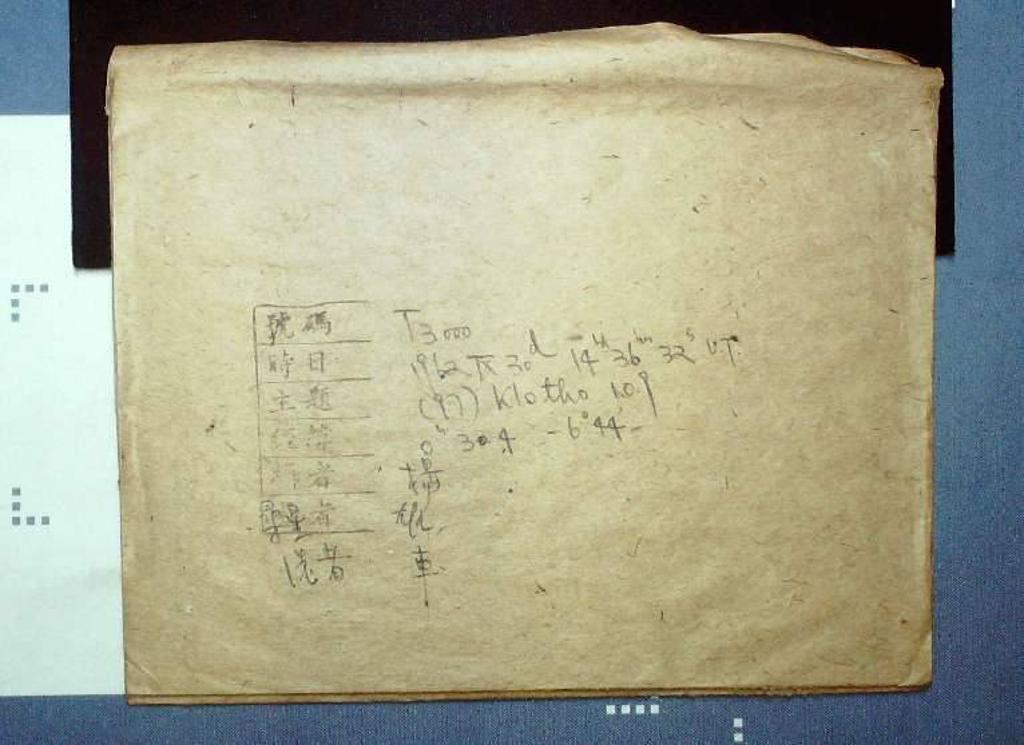 號碼 T3000
時日 1962 IX 30d - 14h 36m 32s UT.
主題 (97) Klotho 10.9
0h 30.4 -6°44
者 楊
者
洗者 車